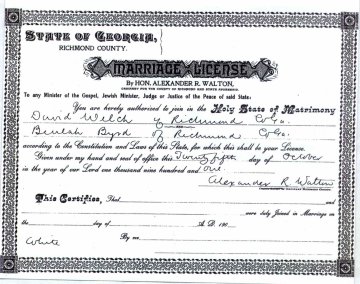 STATE OF GEORGIA,
RICHMOND COUNTY.
MARRIAGE LICENSE
By HON. ALEXANDER R. WALTON,
ORDINARY FOR THE COUNTY OF RICHMOND AND STATE AFORESAID.
To any Minister of the Gospel, Jewish Minister, Judge or Justice of the Peace of said State.
You are hereby authorized to join in the Holy State of Matrimony
David Welch of Richmond Co Ga.
Beulah Byrd of Richmond Co Ga.
according to the Constitution and Laws of this State, for which this shall be your License.
Given under my hand and seal of office this Twenty fifth day of October
in the year of our Lord one thousand nine hundred and one.
Alexander R. Walton
This Certifies, That and
were duly Joined in Marriage on
the day of A. D. 190
White By me